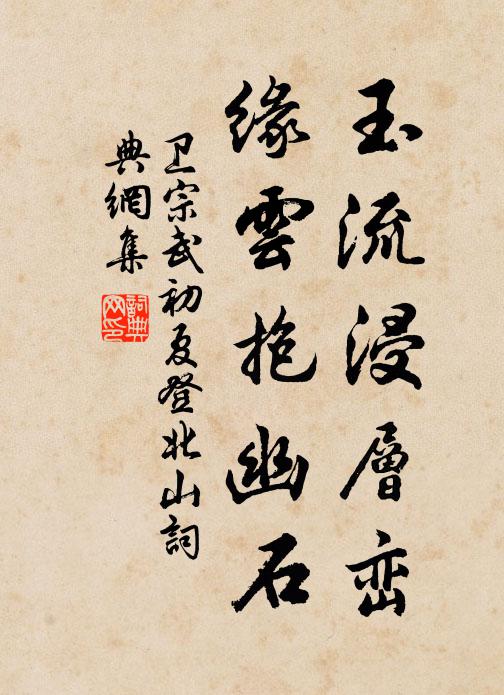 玉流浸層峦
緣雲抱幽石
卫宗武初夏登北山詞
典網集
詞典網印